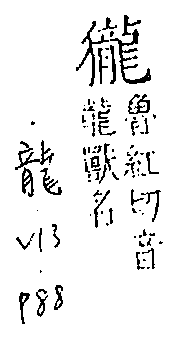 㺣
魯紅切音
龍獸名
龍
V13
P88